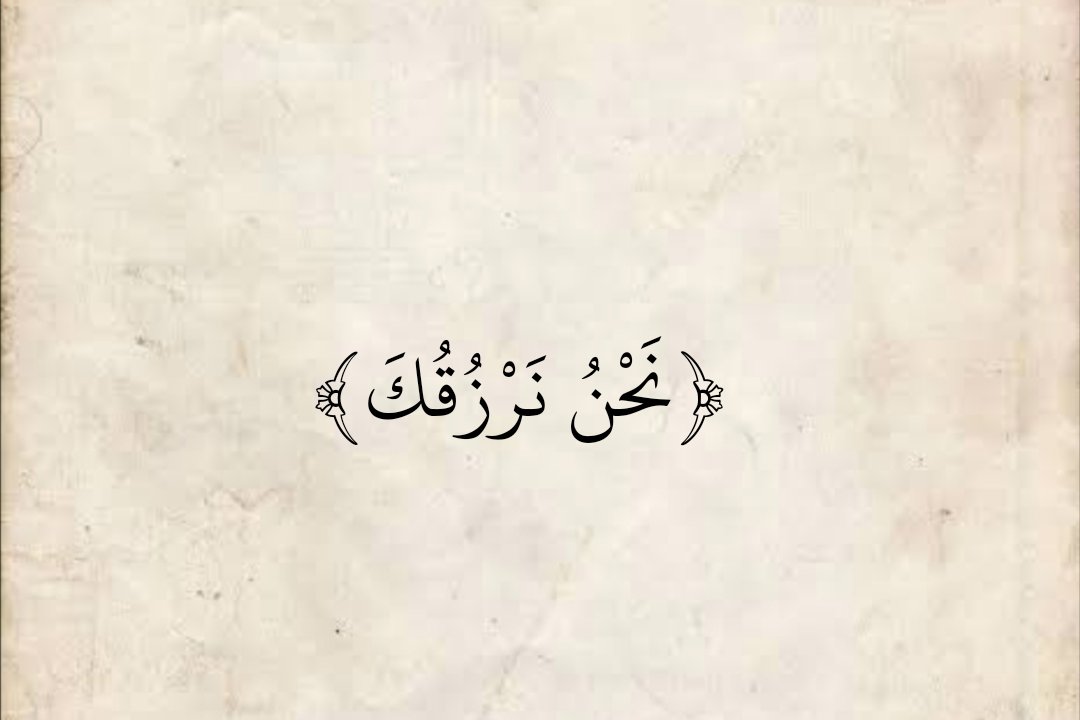 ﴿نَحْنُ نَرْزُقُكَ﴾